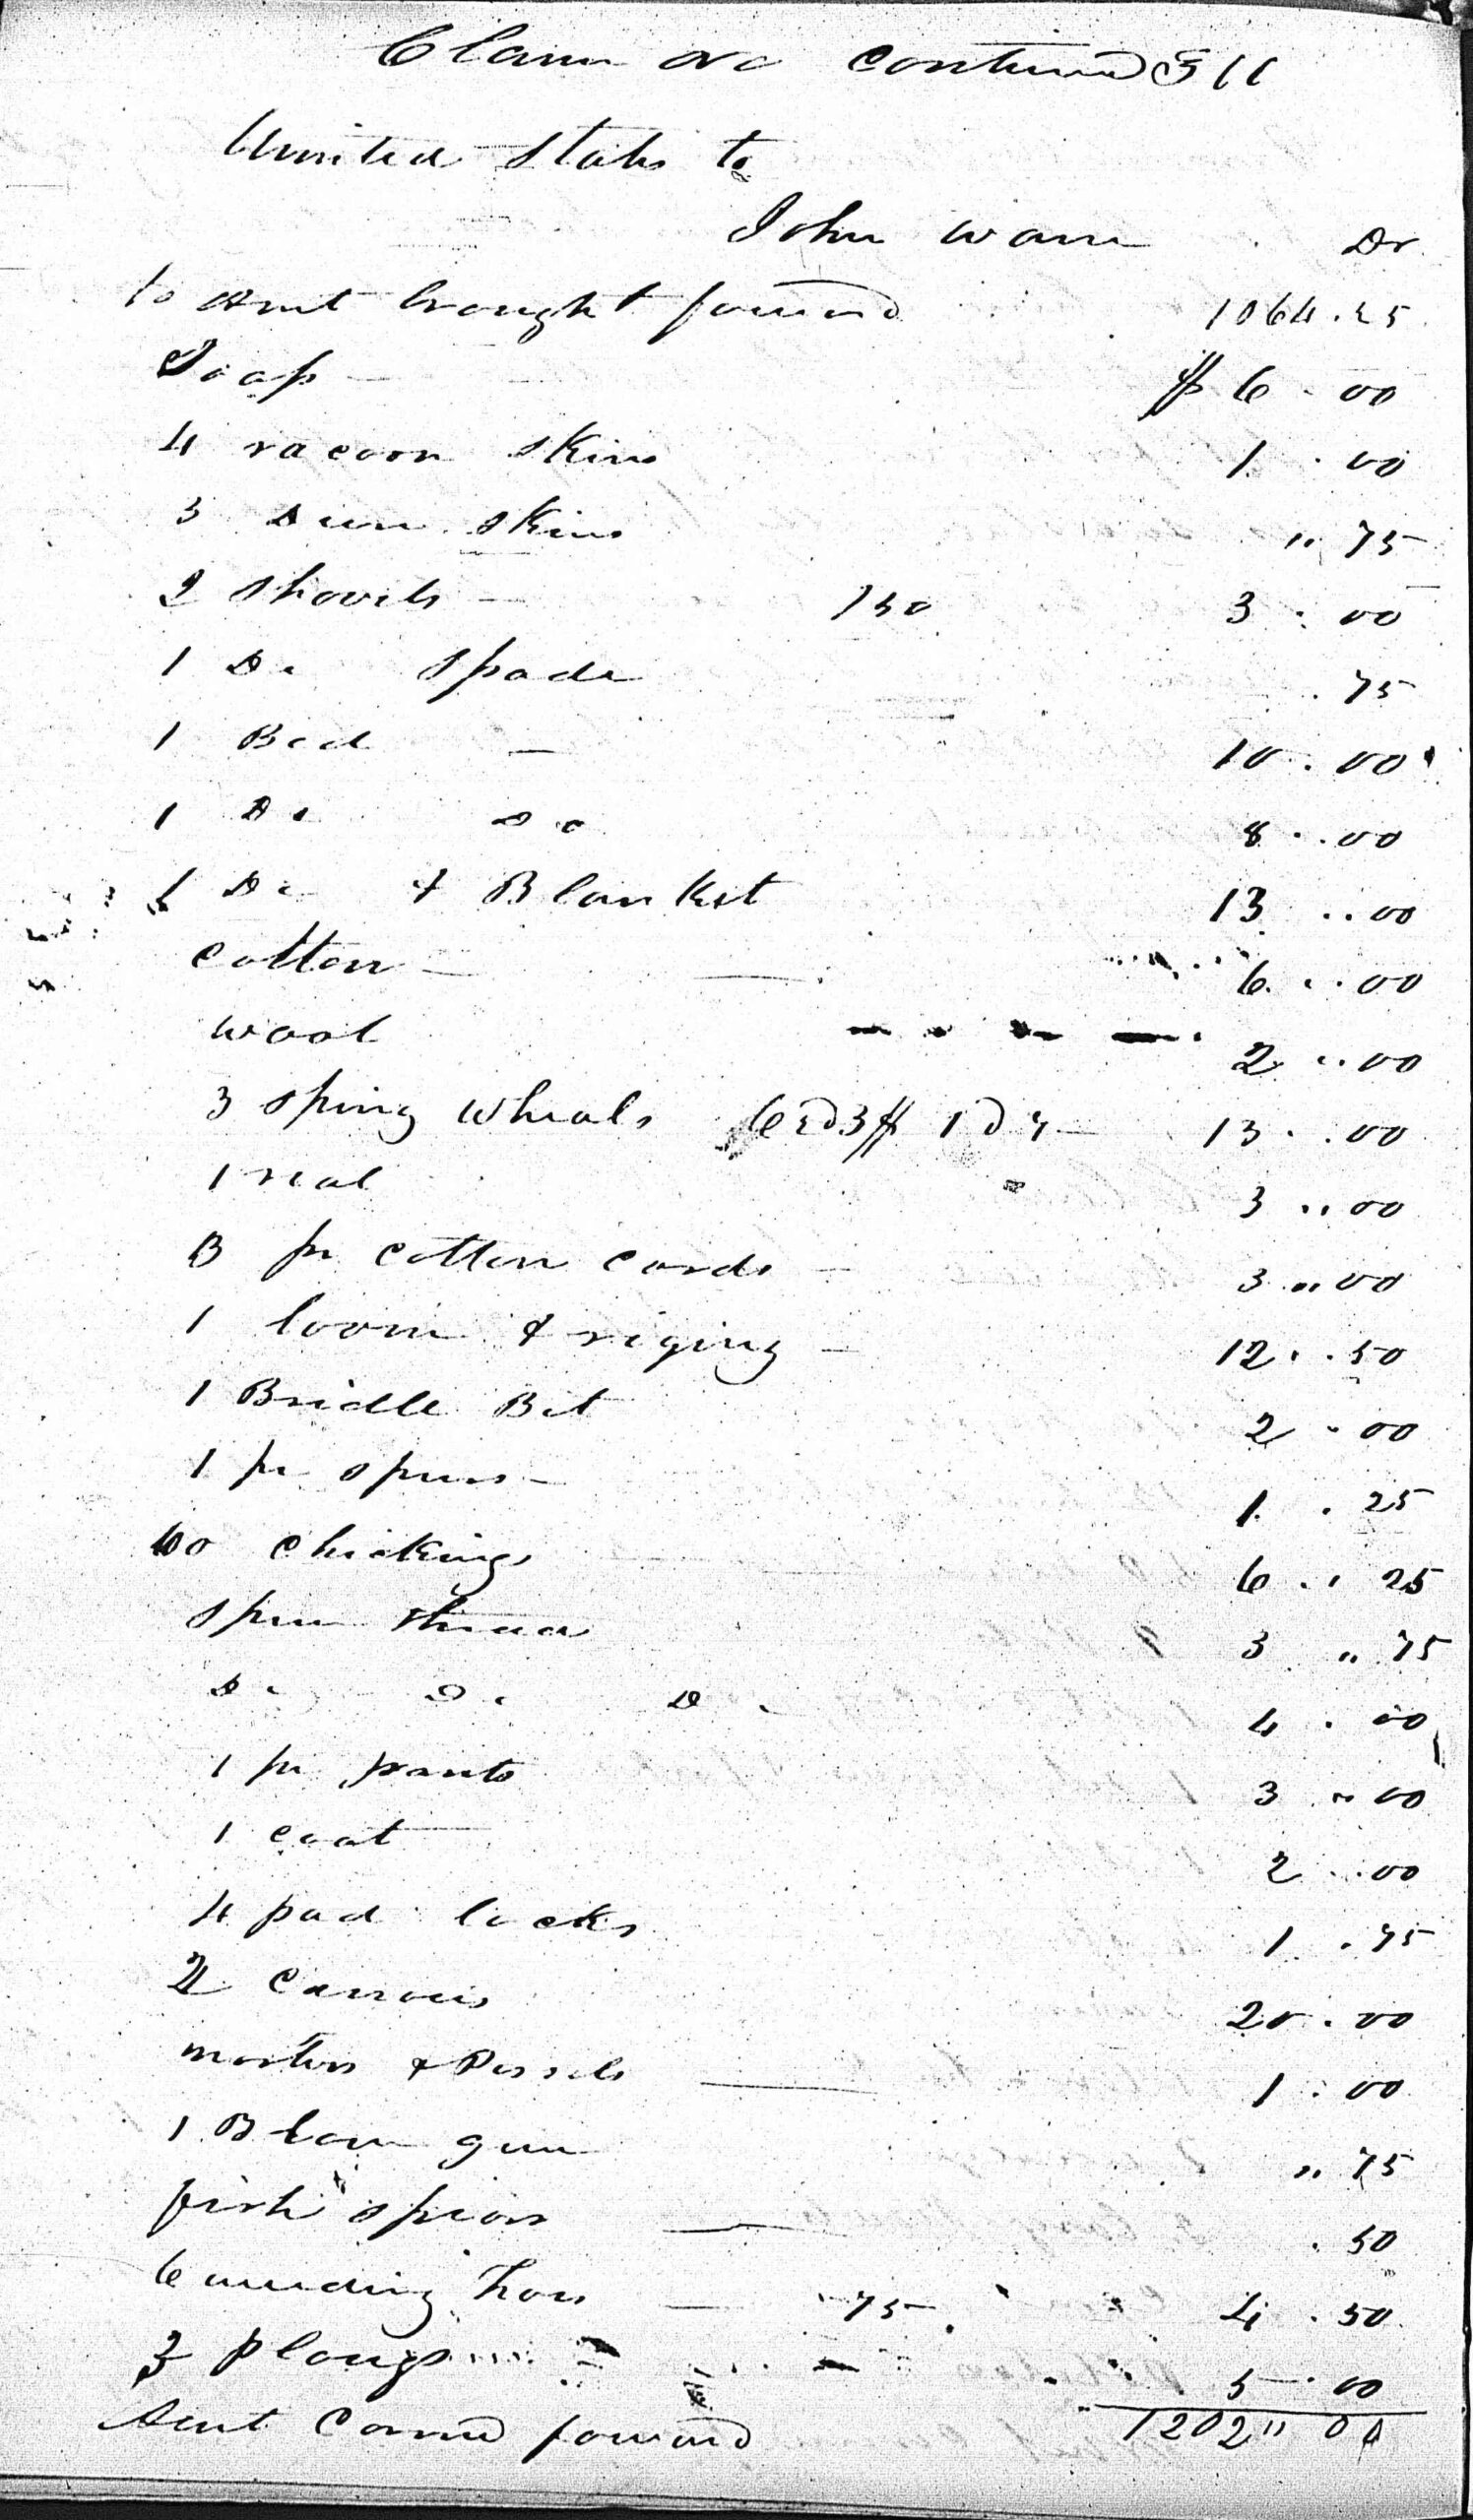 Claim no continued 511
United States to
John Wann Dr
to Amt brought forward 1064.25
Soap — $ 6.00
4 racoon skins 1.00
3 Deer skins " 75
2 shovels — 150 3.00
1 Do spade .75
1 Bed — 10.00
1 Do Do 8..00
1 Do & Blanket 13..00
Cotton — 6...00
wool 2...00
3 sping wheals 13..00
1 real 3...00
3 pr cotton cards — 3..00
1 loom & riging — 12..50
1 Bridle Bit 2.00
1 pr spurs — 1.25
60 chickings 6..25
spun thread 3 " 75
Do Do Do 4.00
1 pr pants 3 " 00
1 coat 2..00
4 pad locks 1.75
2 Cannoes 20.00
morters & Pessels — 1.00
1 Blow gun " 75
fish spears — .50
6 weeding hoes — 75 4.50
3 plougs 5.00
Amt Carried forward 1202 " 00